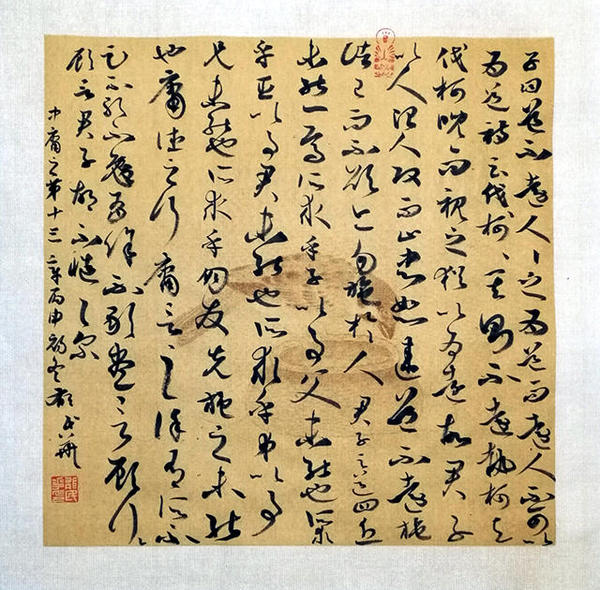 子曰道不遠人人之爲道而遠人不可以
爲道詩云伐柯伐柯其則不遠執柯以
伐柯睨而視之猶以爲遠故君子
以人治人改而止忠恕違道不遠施
諸己而不願亦勿施於人君子之道四丘
未能一焉所求乎子以事父未能也所求
乎臣以事君未能也所求乎弟以事
兄未能也所求乎朋友先施之未能
也庸德之行庸言之謹有所不
足不敢不勉有餘不敢盡言顧行行
顧言君子胡不慥慥爾
中庸之第十三章丙申初冬